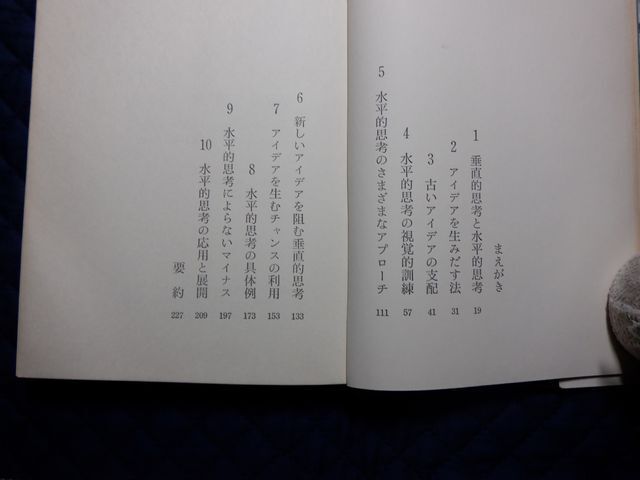 まえがき
1 垂直的思考と水平的思考 19
2 アイデアを生みだす法 31
3 古いアイデアの支配 41
4 水平的思考の視覚的訓練 57
5 水平的思考のさまざまなアプローチ 111
6 新しいアイデアを阻む垂直的思考 133
7 アイデアを生むチャンスの利用 153
8 水平的思考の具体例 173
9 水平的思考によらないマイナス 197
10 水平的思考の応用と展開 209
要約 227